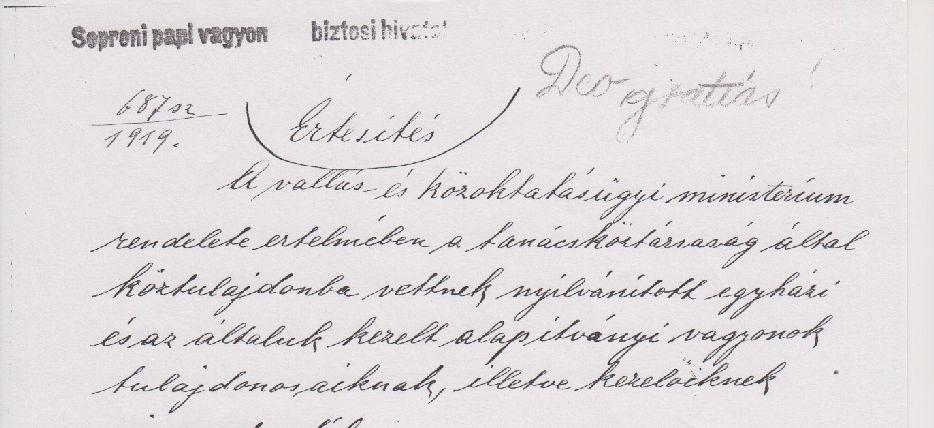 Soproni papi vagyon biztosi hivatal
Deo gratias!
687 sz
1919.
Értesítés
A vallás- és közoktatásügyi ministerium
rendelete értelmében a tanácsköztársaság által
köztulajdonba vettnek nyilvánított egyházi
és az általuk kezelt alapítványi vagyonok
tulajdonosaiknak, illetve kezelőiknek